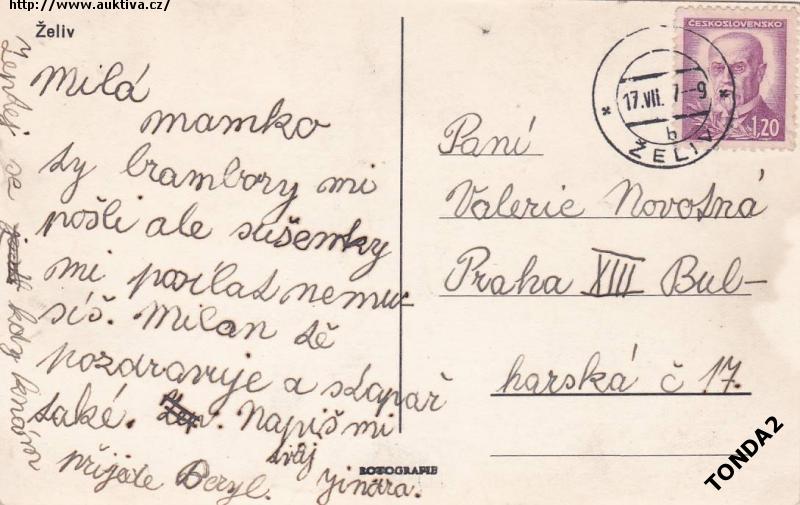 http://www.auktiva.cz/
Želiv
Milá
mamko
ty brambory mi
pošli ale sušenky
mi posílat nemu-
síš. Milan tě
pozdravuje a stapař
také. Napiš mi
přijede Beryl. tvůj
Jindra.
Zeptej se kdy k nám
ROTOGRAFIE
ČESKOSLOVENSKO
1,20
17.VII. 7-9
b
ŽELIV
Paní
Valerie Novotná
Praha XIII Bul-
harská č 17.
TONDA2